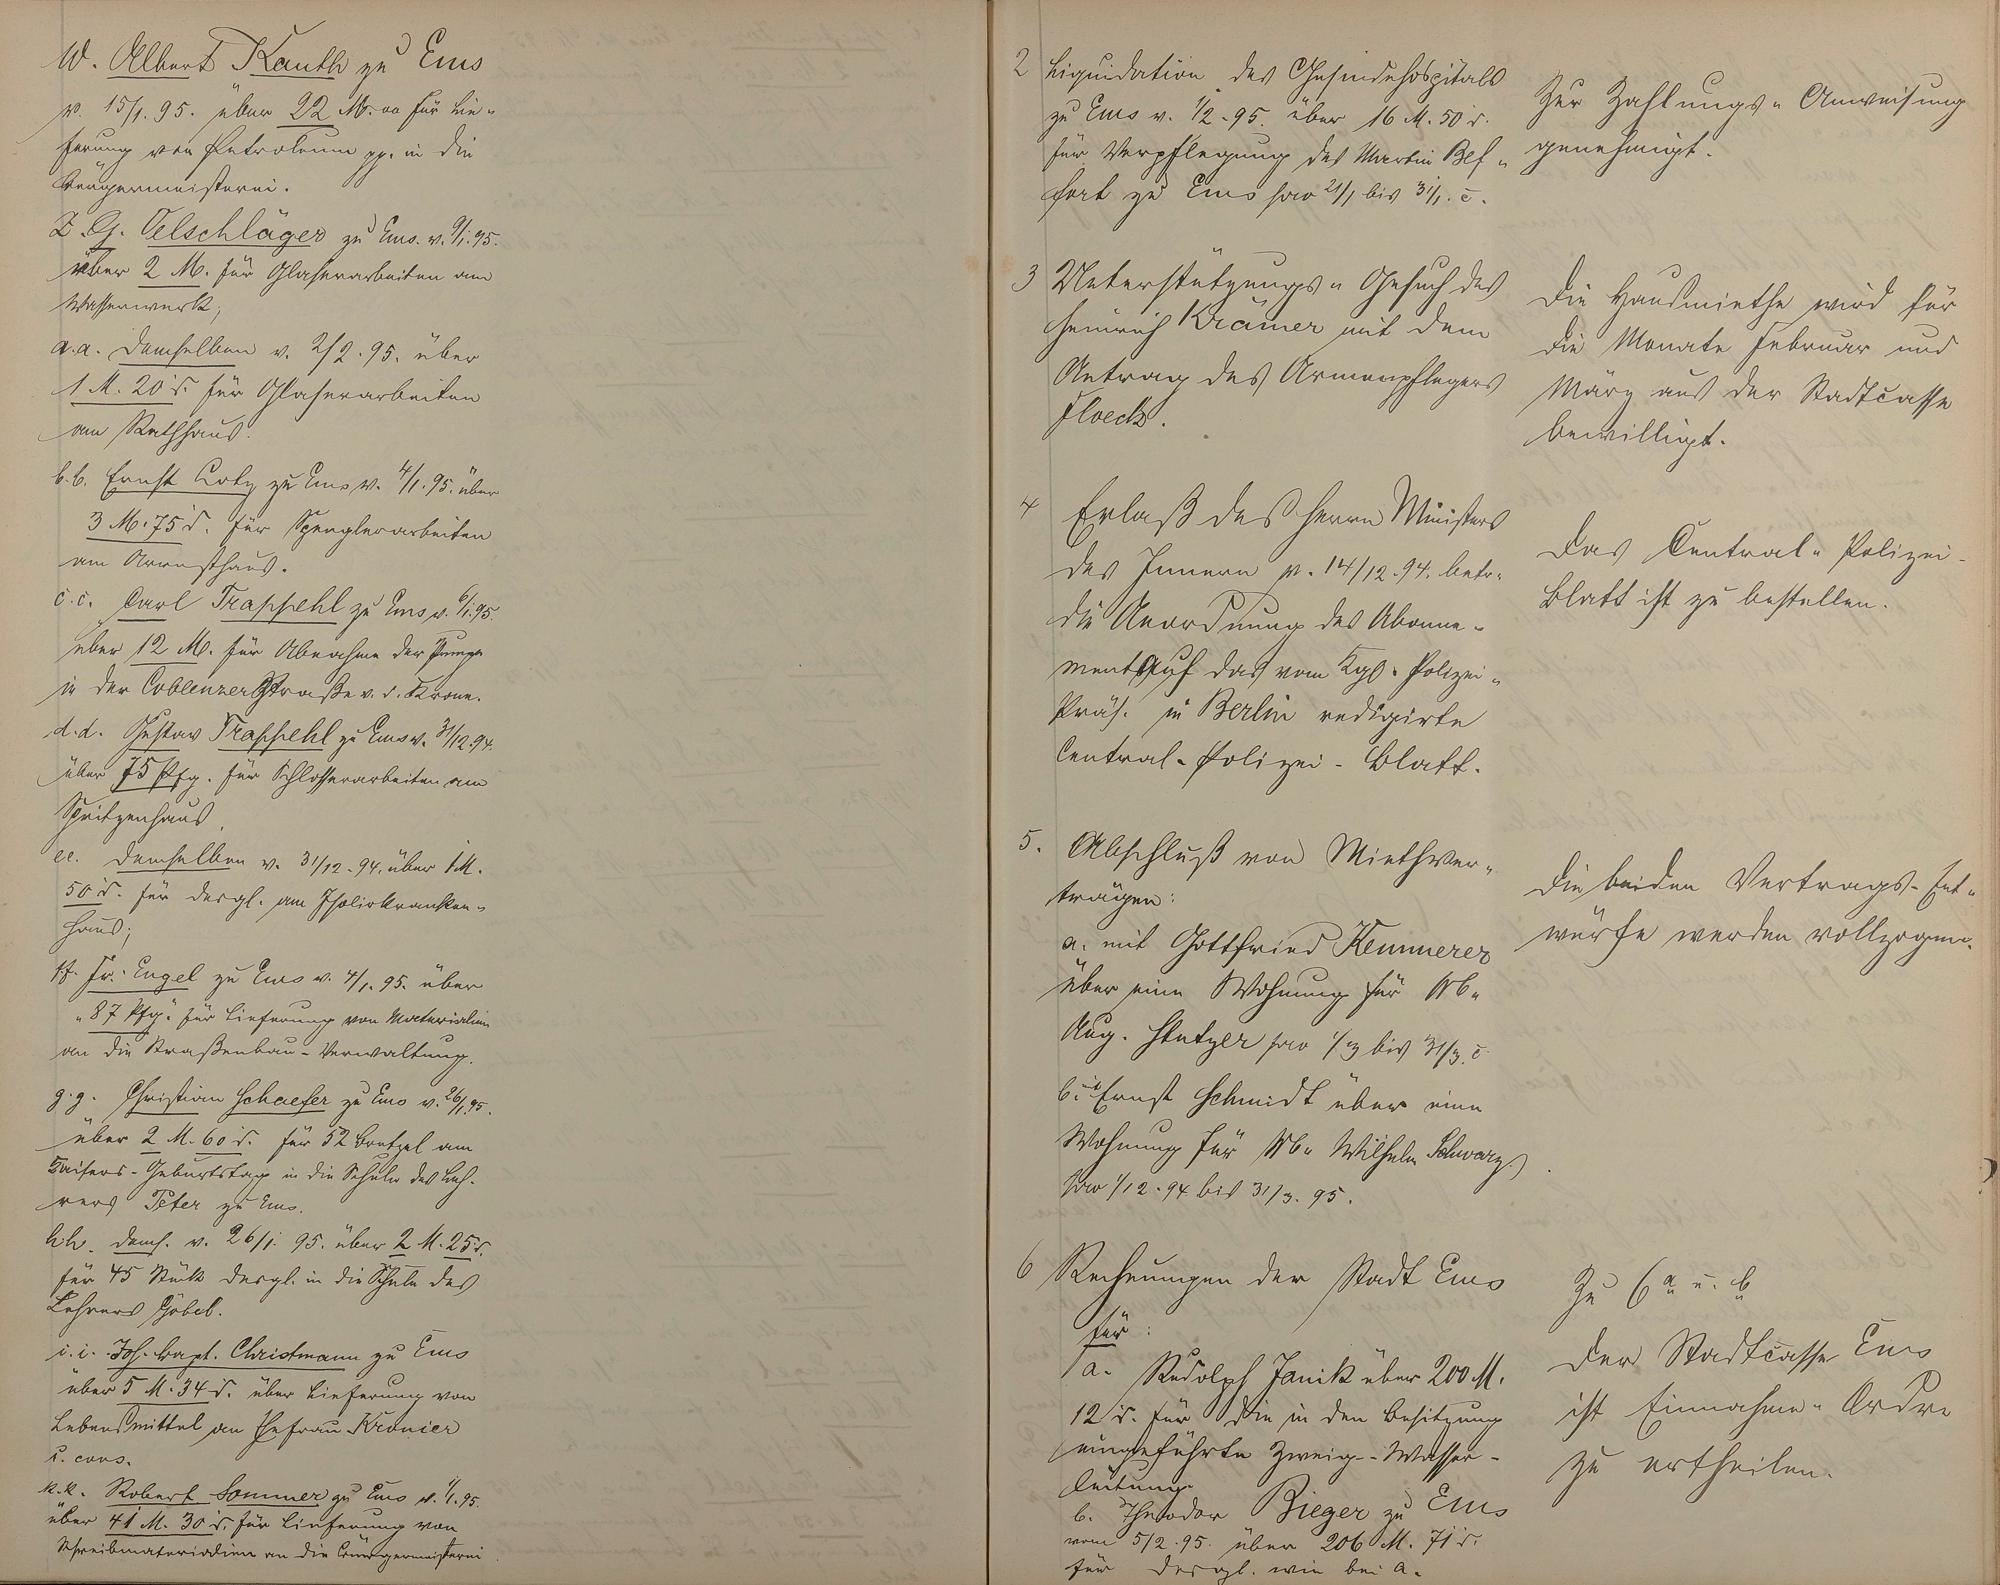 W. Albert Kauth zu Ems
v. 15/1. 95. über 22 M. für Lie-
ferung von Petroleum pp. in die
Bürgermeisterei.
Z. G. Oelschläger zu Ems. v. 9/1. 95.
über 2 M. für Glaserarbeiten am
Wasserwerk;
a.a. Demselben v. 2/2. 95. über
1 M. 20 d. für Glaserarbeiten
am Rathhaus.
b.b. Ernst Coty zu Ems v. 4/1. 95. über
3 M. 75 d. für Spenglerarbeiten
am Arresthaus.
c.c. Carl Trapphehl zu Ems v. 6/1. 95.
über 12 M. für Abnahme der Pumpe
in der Coblenzer Straße v. d. Krone.
d.d. Gustav Trapphehl zu Ems v. 31/12. 94.
über 75 Pfg. für Schlosserarbeiten am
Spritzenhaus.
ee. Demselben v. 31/12. 94. über 1 M.
50 d. für desgl. am Isolirkranken-
haus;
ff. Fr. Engel zu Ems v. 4/1. 95. über
"87 Pfg." für Lieferung von Materialien
an die Straßenbau-Verwaltung.
g.g. Christian Schaefer zu Ems v. 26/1. 95.
über 2 M. 60 d. für 52 Bretzel am
Kaisers-Geburtstag in die Schule des Leh-
rers Peter zu Ems.
hh. dems. v. 26/1. 95. über 2 M. 25 d.
für 45 Stück desgl. in die Schule des
Lehrers Göbel.
i.i. Joh. Bapt. Christmann zu Ems
über 5 M. 34 d. über Lieferung von
Lebensmittel an Ehefrau Kronier
u. cons.
k.k. Robert Sommer zu Ems v. 1/1. 95.
über 41 M. 30 d. für Lieferung von
Schreibmaterialien an die Bürgermeisterei
2 Liquidation des Gesindehospitals
zu Ems v. 1/2. 95. über 16 M. 50 d.
für Verpflegung des Martin Bel-
fort zu Ems pro 21/1 bis 31/1. c.
Zur Zahlungs-Anweisung
genehmigt.
3 Unterstützungs-Gesuch des
Heinrich Krämer mit dem
Antrag des Armenpflegers
Floeck.
Die Hausmiethe wird für
die Monate Februar und
März aus der Stadtcasse
bewilligt.
4 Erlaß des Herrn Ministers
des Innern v. 14/12. 94. betr.
die Anordnung des Abonne-
ments auf das vom Kgl. Polizei-
Präs. in Berlin redigirte
Central-Polizei-Blatt.
Das Central-Polizei-
Blatt ist zu bestellen.
5. Abschluß von Miethver-
trägen:
a. mit Gottfried Kemmerer
über eine Wohnung für Wb.
Aug. Stutzer pro 1/3 bis 31/3. c
b. Ernst Schmidt über eine
Wohnung für Wb. Wilhelm Schwarz
pro 1/12. 94 bis 31/3. 95.
Die beiden Vertrags-Ent-
würfe werden vollzogen.
6 Rechnungen der Stadt Ems
für:
a. Rudolph Janik über 200 M.
12 d. für die in den Besitzung
eingeführte Zweig-Wasser-
leitung.
b. Theodor Bieger zu Ems
vom 5/2. 95. über 206 M. 71 d.
für desgl. wie bei a.
Zu 6 a u. b
Der Stadtcasse Ems
ist Einnahme-Ordre
zu ertheilen.